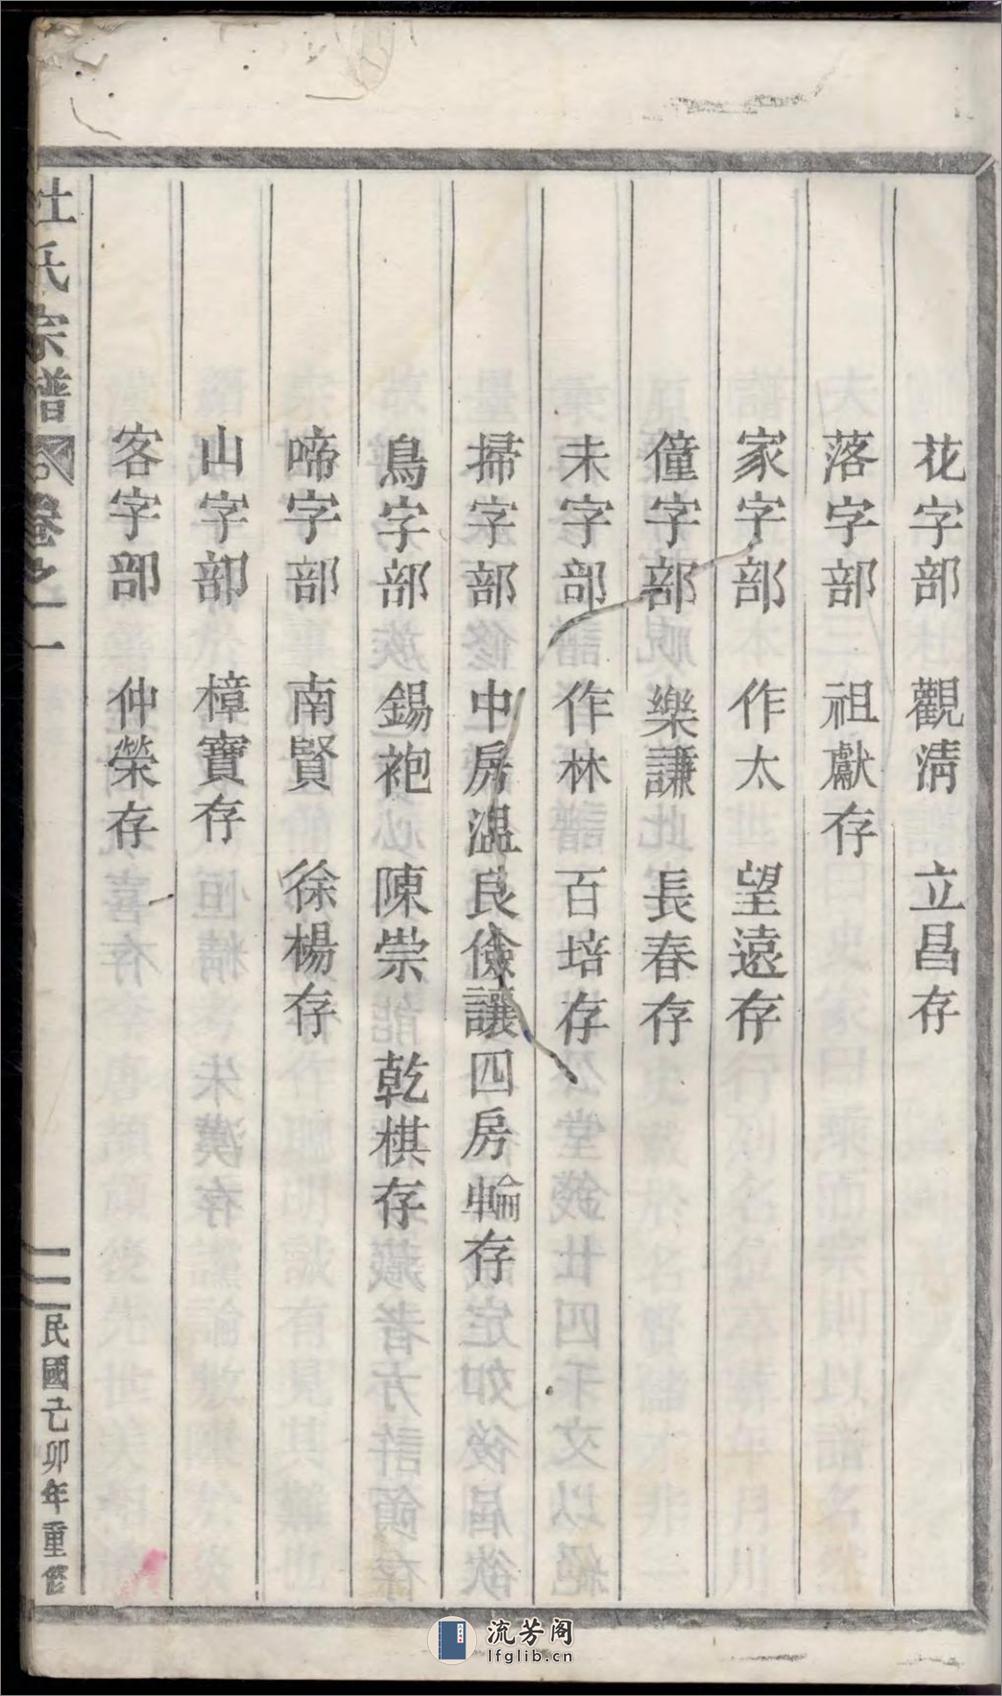 花字部 觀淸 立昌存
落字部 祖獻存
家字部 作太 望遠存
僮字部 樂謙 長春存
未字部 作林 百培存
掃字部 中房温良儉讓四房輪存
鳥字部 錫袍 陳崇 乾棋存
啼字部 南賢 徐楊存
山字部 樟寶存
客字部 仲榮存
杜氏宗譜 卷之一 二 民國己卯年重修
流芳阁
lfglib.cn